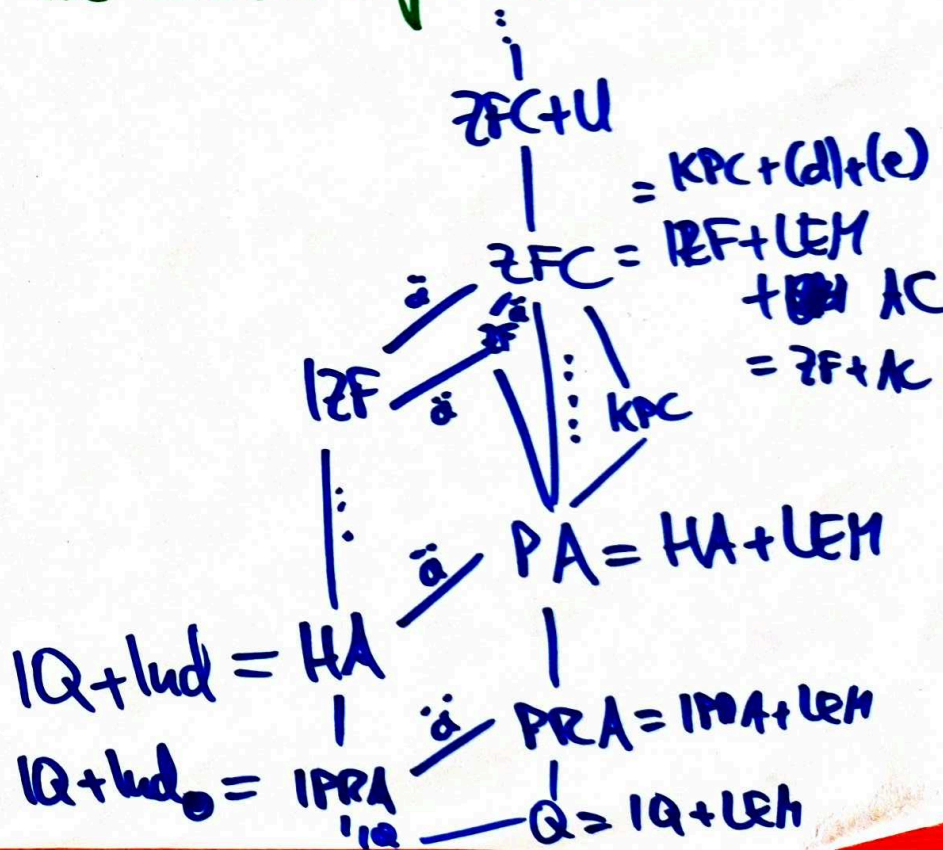 ZFC+U
= KPC+(d)+(e)
ZFC = IZF+LEM
+ AC
= ZF+AC
ä
ä
ZF
IZF
ä
KPC
PA = HA+LEM
ä
IQ+Ind = HA
PRA = IPRA+LEM
ä
IQ+Ind₀ = IPRA
IQ
Q = IQ+LEM